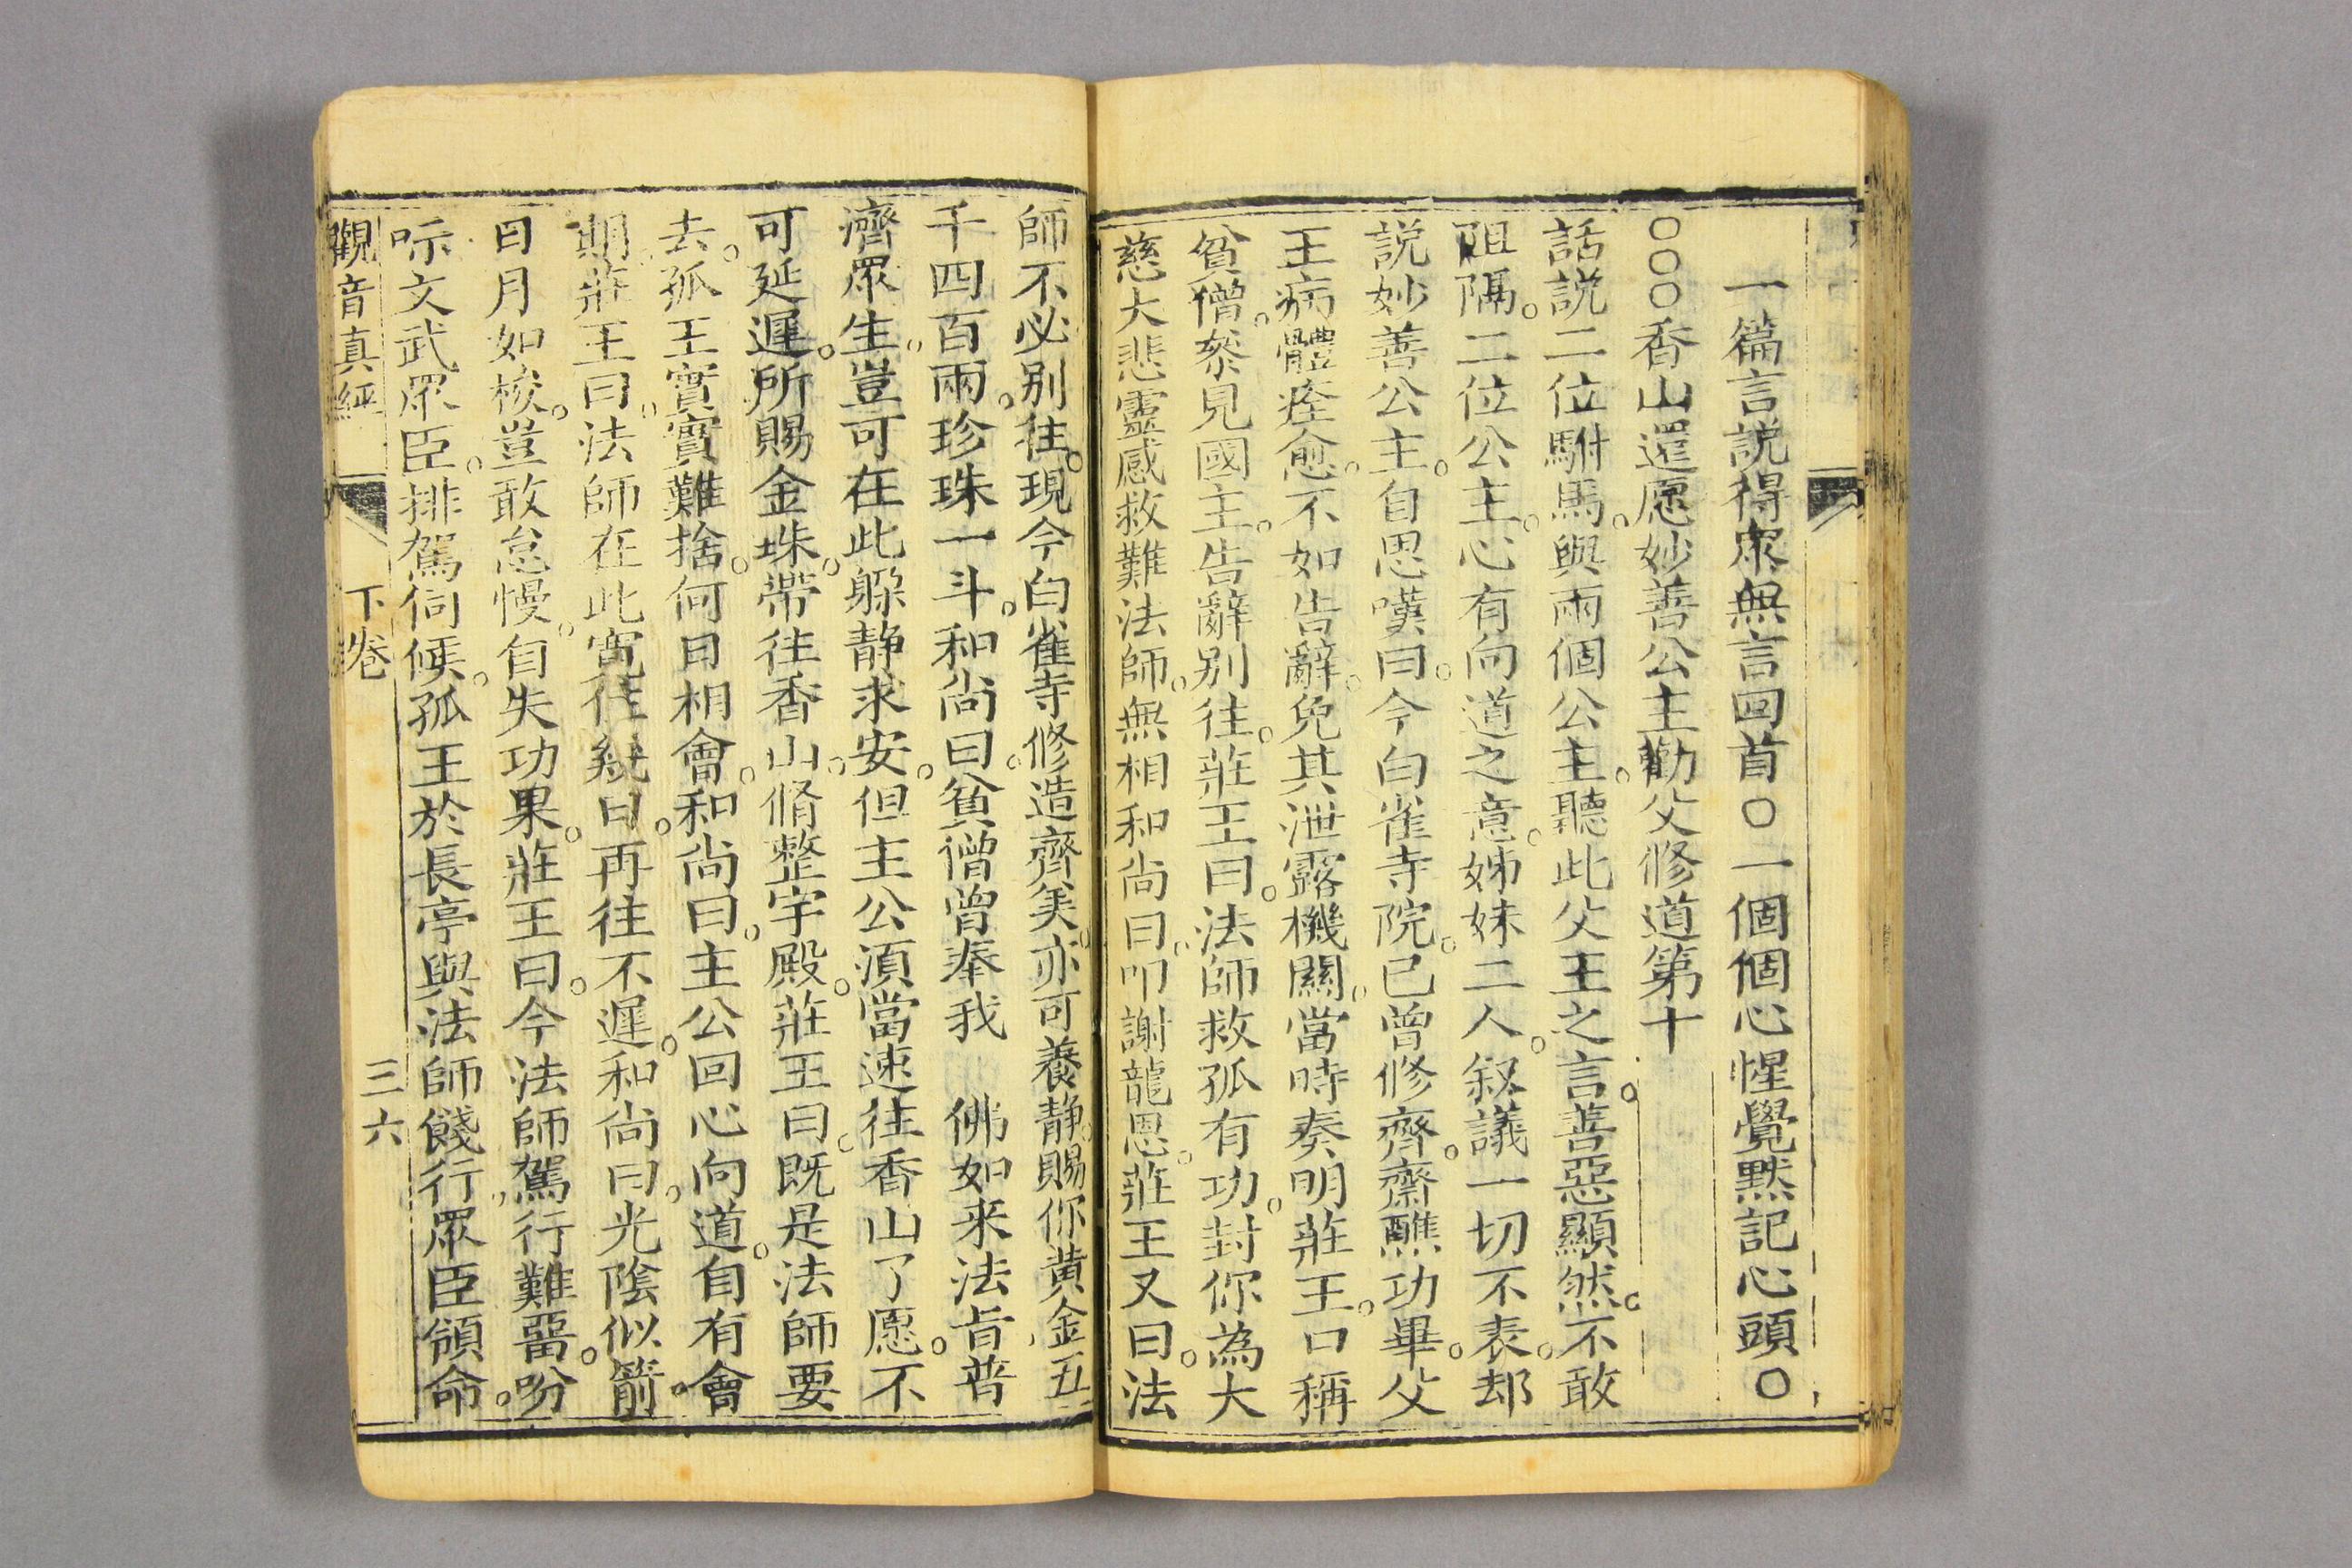 一篇言說得衆無言回首○一個個心惺覺黙記心頭○
○○○香山還愿妙善公主勸父修道第十
話說二位駙馬。與兩個公主。聽此父王之言。善惡顯然。不敢
阻隔。二位公主。心有向道之意。姊妹二人。叙議一切不表。却
説妙善公主。自思嘆曰。今白雀寺院。已曾修齊。齋醮功畢。父
王病體痊愈。不如告辭。免其泄露機關。當時奏明莊王。口稱
貧僧。叅見國主。告辭别往。莊王曰。法師救孤有功。封你為大
慈大悲靈感救難法師。無相和尚曰。叩謝龍恩。莊王又曰。法
師不必别往。現今白雀寺修造齊美。亦可養静。賜你黄金五
千四百兩。珍珠一斗。和尚曰。貧僧曾奉我　佛如来法旨普
濟眾生。豈可在此躲静求安。但主公湏當速往香山了愿。不
可延遲。所賜金珠。帶往香山。脩整宇殿。莊王曰。既是法師要
去。孤王實實難捨。何日相會。和尚曰。主公回心向道。自有會
期。莊王曰。法師在此寬住幾日。再往不遲。和尚曰。光隂似箭。
日月如梭。豈敢怠慢。自失功果。莊王曰。今法師駕行難畱。吩
咶文武眾臣。排駕伺候。孤王於長亭與法師餞行。眾臣領命。
觀音真經　下卷　三六